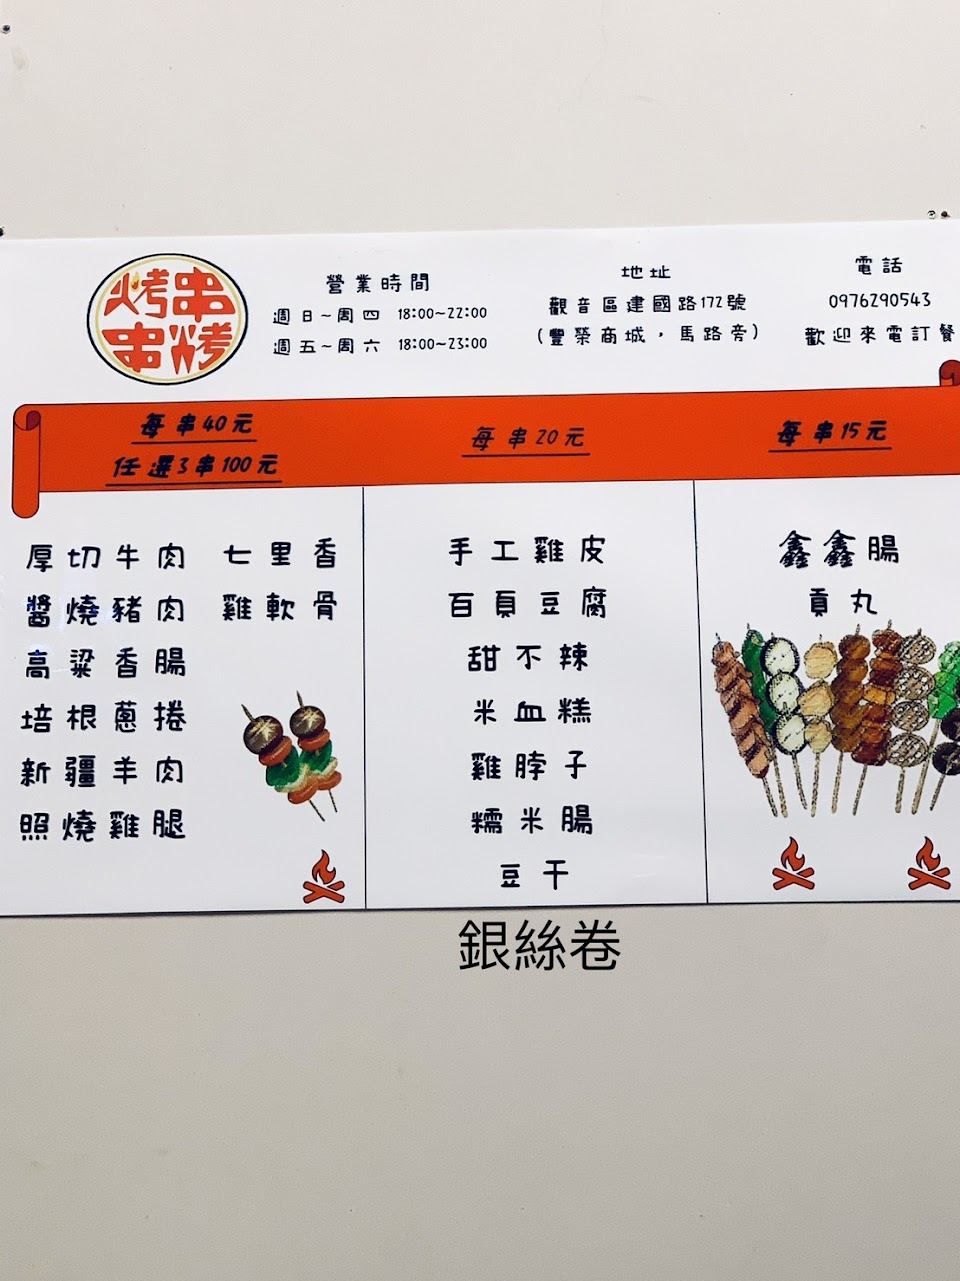 烤串
串烤
營業時間
週日~周四 18:00~22:00
週五~周六 18:00~23:00
地址
觀音區建國路172號
(豐榮商城，馬路旁)
電話
0976290543
歡迎來電訂餐
每串40元
任選3串100元
厚切牛肉 七里香
醬燒豬肉 雞軟骨
高粱香腸
培根蔥捲
新疆羊肉
照燒雞腿
每串20元
手工雞皮
百頁豆腐
甜不辣
米血糕
雞脖子
糯米腸
豆干
銀絲卷
每串15元
鑫鑫腸
貢丸